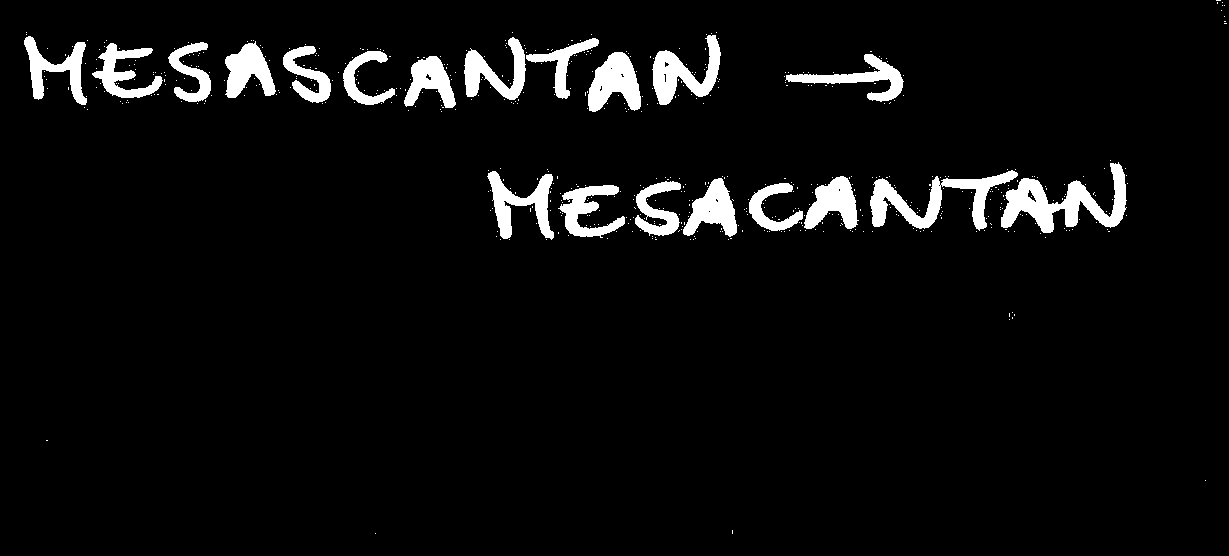 MESASCANTAN →
MESACANTAN